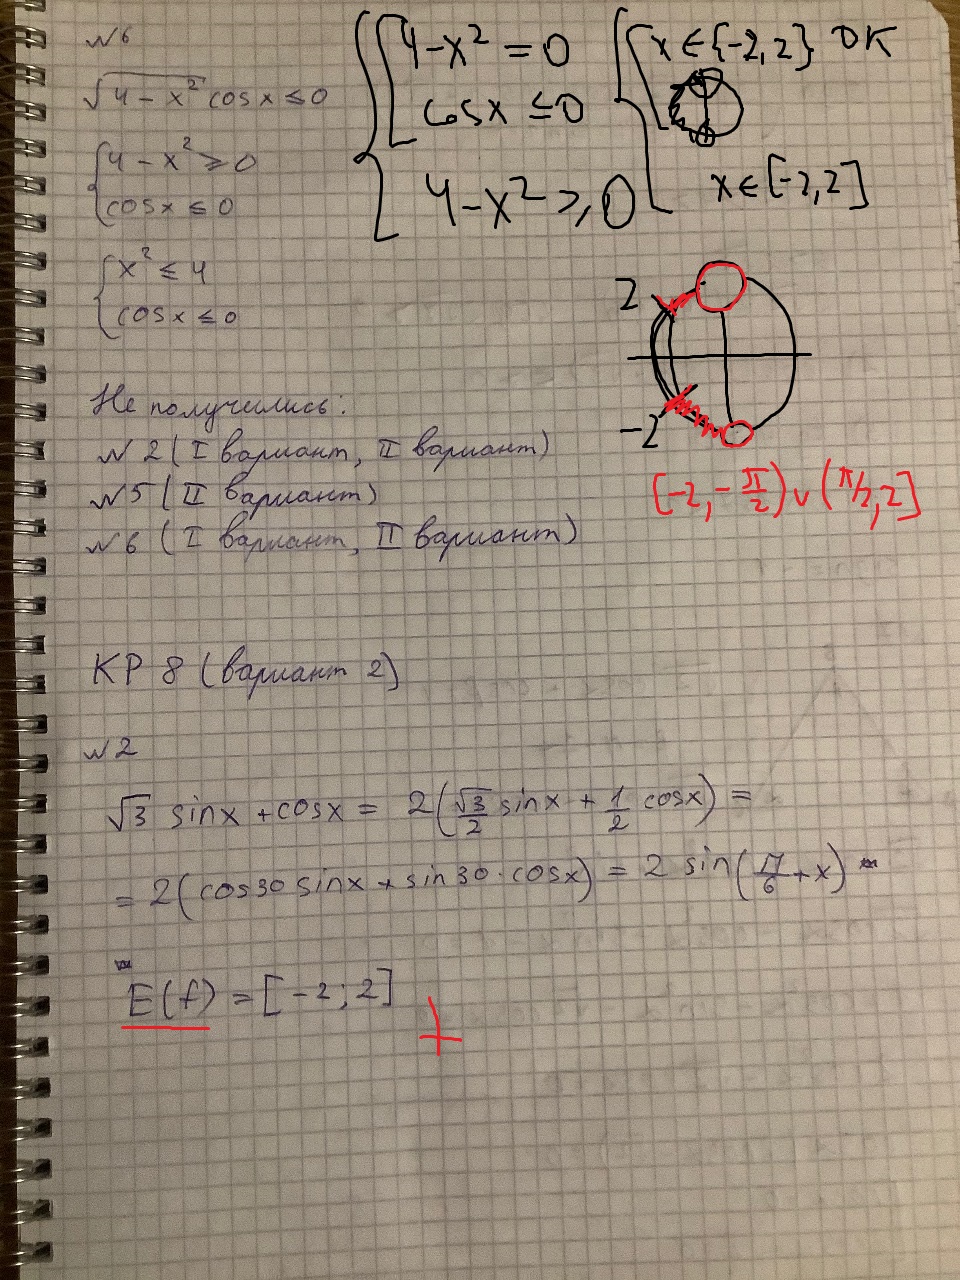 №6
√4 - x² cosx ≤ 0
{ 4 - x² ≥ 0
cosx ≤ 0
{ x² ≤ 4
cosx ≤ 0
{ [ 4-x² = 0
cosx ≤ 0
4-x² ≥ 0
{ [ x ∈ {-2, 2} OK
x ∈ [-2, 2]
2
-2
[-2, -π/2) ∪ (π/2, 2]
Не получились:
№2 (I вариант, II вариант)
№5 (II вариант)
№6 (I вариант, II вариант)
КР 8 (вариант 2)
№2
√3 sinx + cosx = 2(√3/2 sinx + 1/2 cosx) =
= 2(cos30 sinx + sin30·cosx) = 2 sin(π/6 + x)
E(f) = [-2; 2]
+